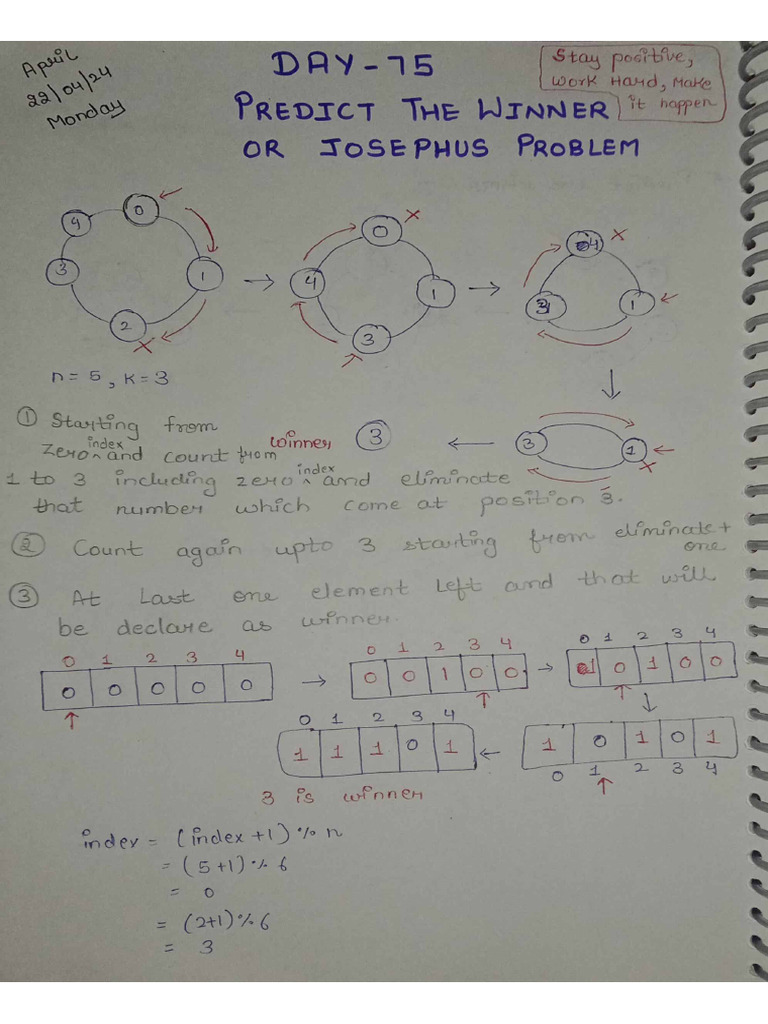 April
22/04/24
Monday
DAY-75
PREDICT THE WINNER
OR JOSEPHUS PROBLEM
Stay positive,
Work Hard, Make
it happen
0
4
1
3
2
x
0
x
4
1
3
4
x
1
n = 5, k = 3
3
1
x
winner
3
① Starting from
zero index and count from
1 to 3 including zero index and eliminate
that number which come at position 3.
② Count again upto 3 starting from eliminate +
one
③ At Last one element left and that will
be declare as winner.
0 1 2 3 4
0 0 0 0 0
0 1 2 3 4
0 0 1 0 0
0 1 2 3 4
1 0 1 0 0
1 0 1 0 1
0 1 2 3 4
0 1 2 3 4
1 1 1 0 1
3 is winner
index = (index+1) % n
= (5+1) % 6
= 0
= (2+1) % 6
= 3